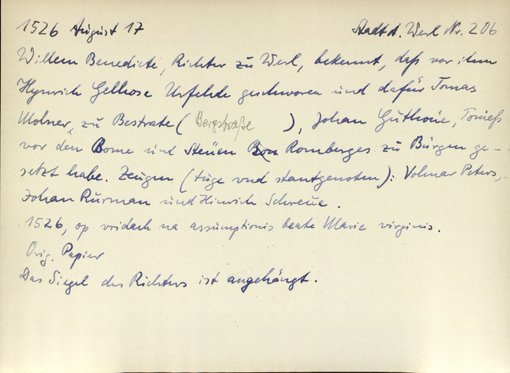 1526 August 17 Stadt A. Werl Nr. 206
Willem Benedicte, Richter zu Werl, bekennt, daß vor ihm
Heynrich Gellhose Urfehde geschworen und dafür Tomas
Molner, zu Bestrate (Bergstraße), Johan Guthoue, Tonieß
vor den Borne und Steuen Romberges zu Bürgen ge-
setzt habe. Zeugen (tüge vnd stantgenoten): Volmar Peters,
Johan Rurman und Hinrich
1526, op vridach na assumptionis beate Marie virginis.
Orig. Papier
Das Siegel des Richters ist angehängt.